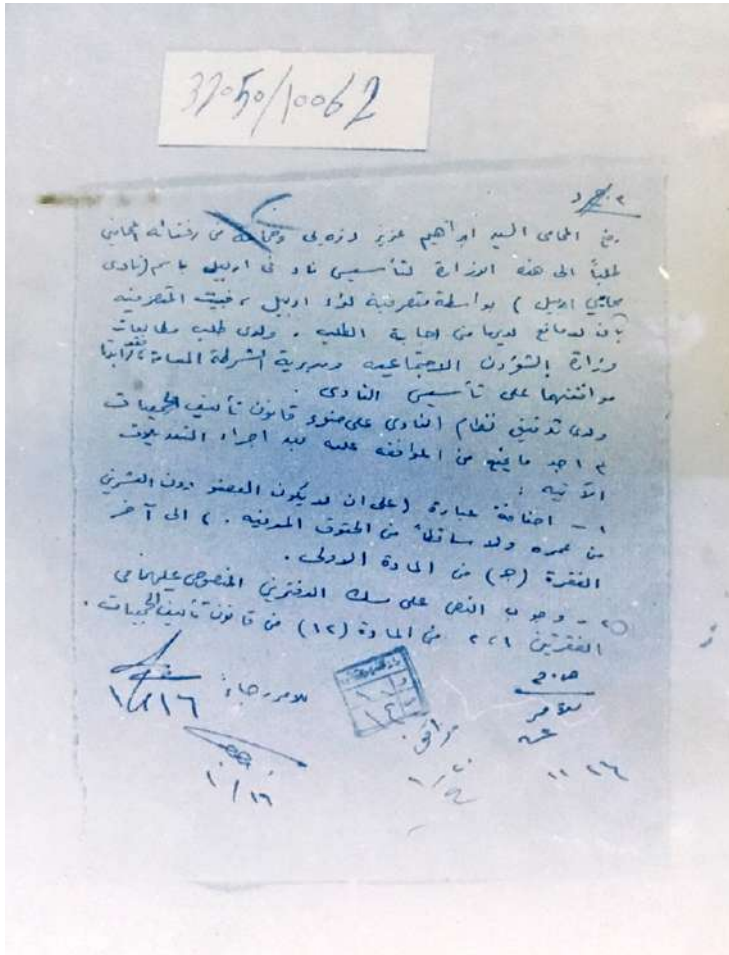 32050/10062
رفع المحامي السيد ابراهيم عزيز دزه يى وجماعة من رفقائه المحامين
طلباً الى هذه الوزارة لتأسيس ناد في اربيل باسم (نادي
محامي اربيل) بواسطة متصرفية لواء اربيل، المتصرفية
بأن لا مانع لديها من اجابة الطلب. ولدى طلب مطالعات
وزارة الشؤون الاجتماعية ومديرية الشرطة العامة،
موافقتهما على تأسيس النادي.
ولدى تدقيق نظام النادي على ضوء قانون تأليف الجمعيات
لم اجد ما يمنع من الموافقة عليه بعد اجراء التعديلات
الآتية:
١- اضافة عبارة (على ان لا يكون العضو دون العشرين
من عمره ولا ساقطاً من الحقوق المدنية.) الى آخر
الفقرة (هـ) من المادة الاولى.
٢- وجوب النص على مسك الدفترين المنصوص عليهما في
الفقرتين ١، ٢ من المادة (١٢) من قانون تأليف الجمعيات.
للامر رجاءً
١/١٦
١/١٦